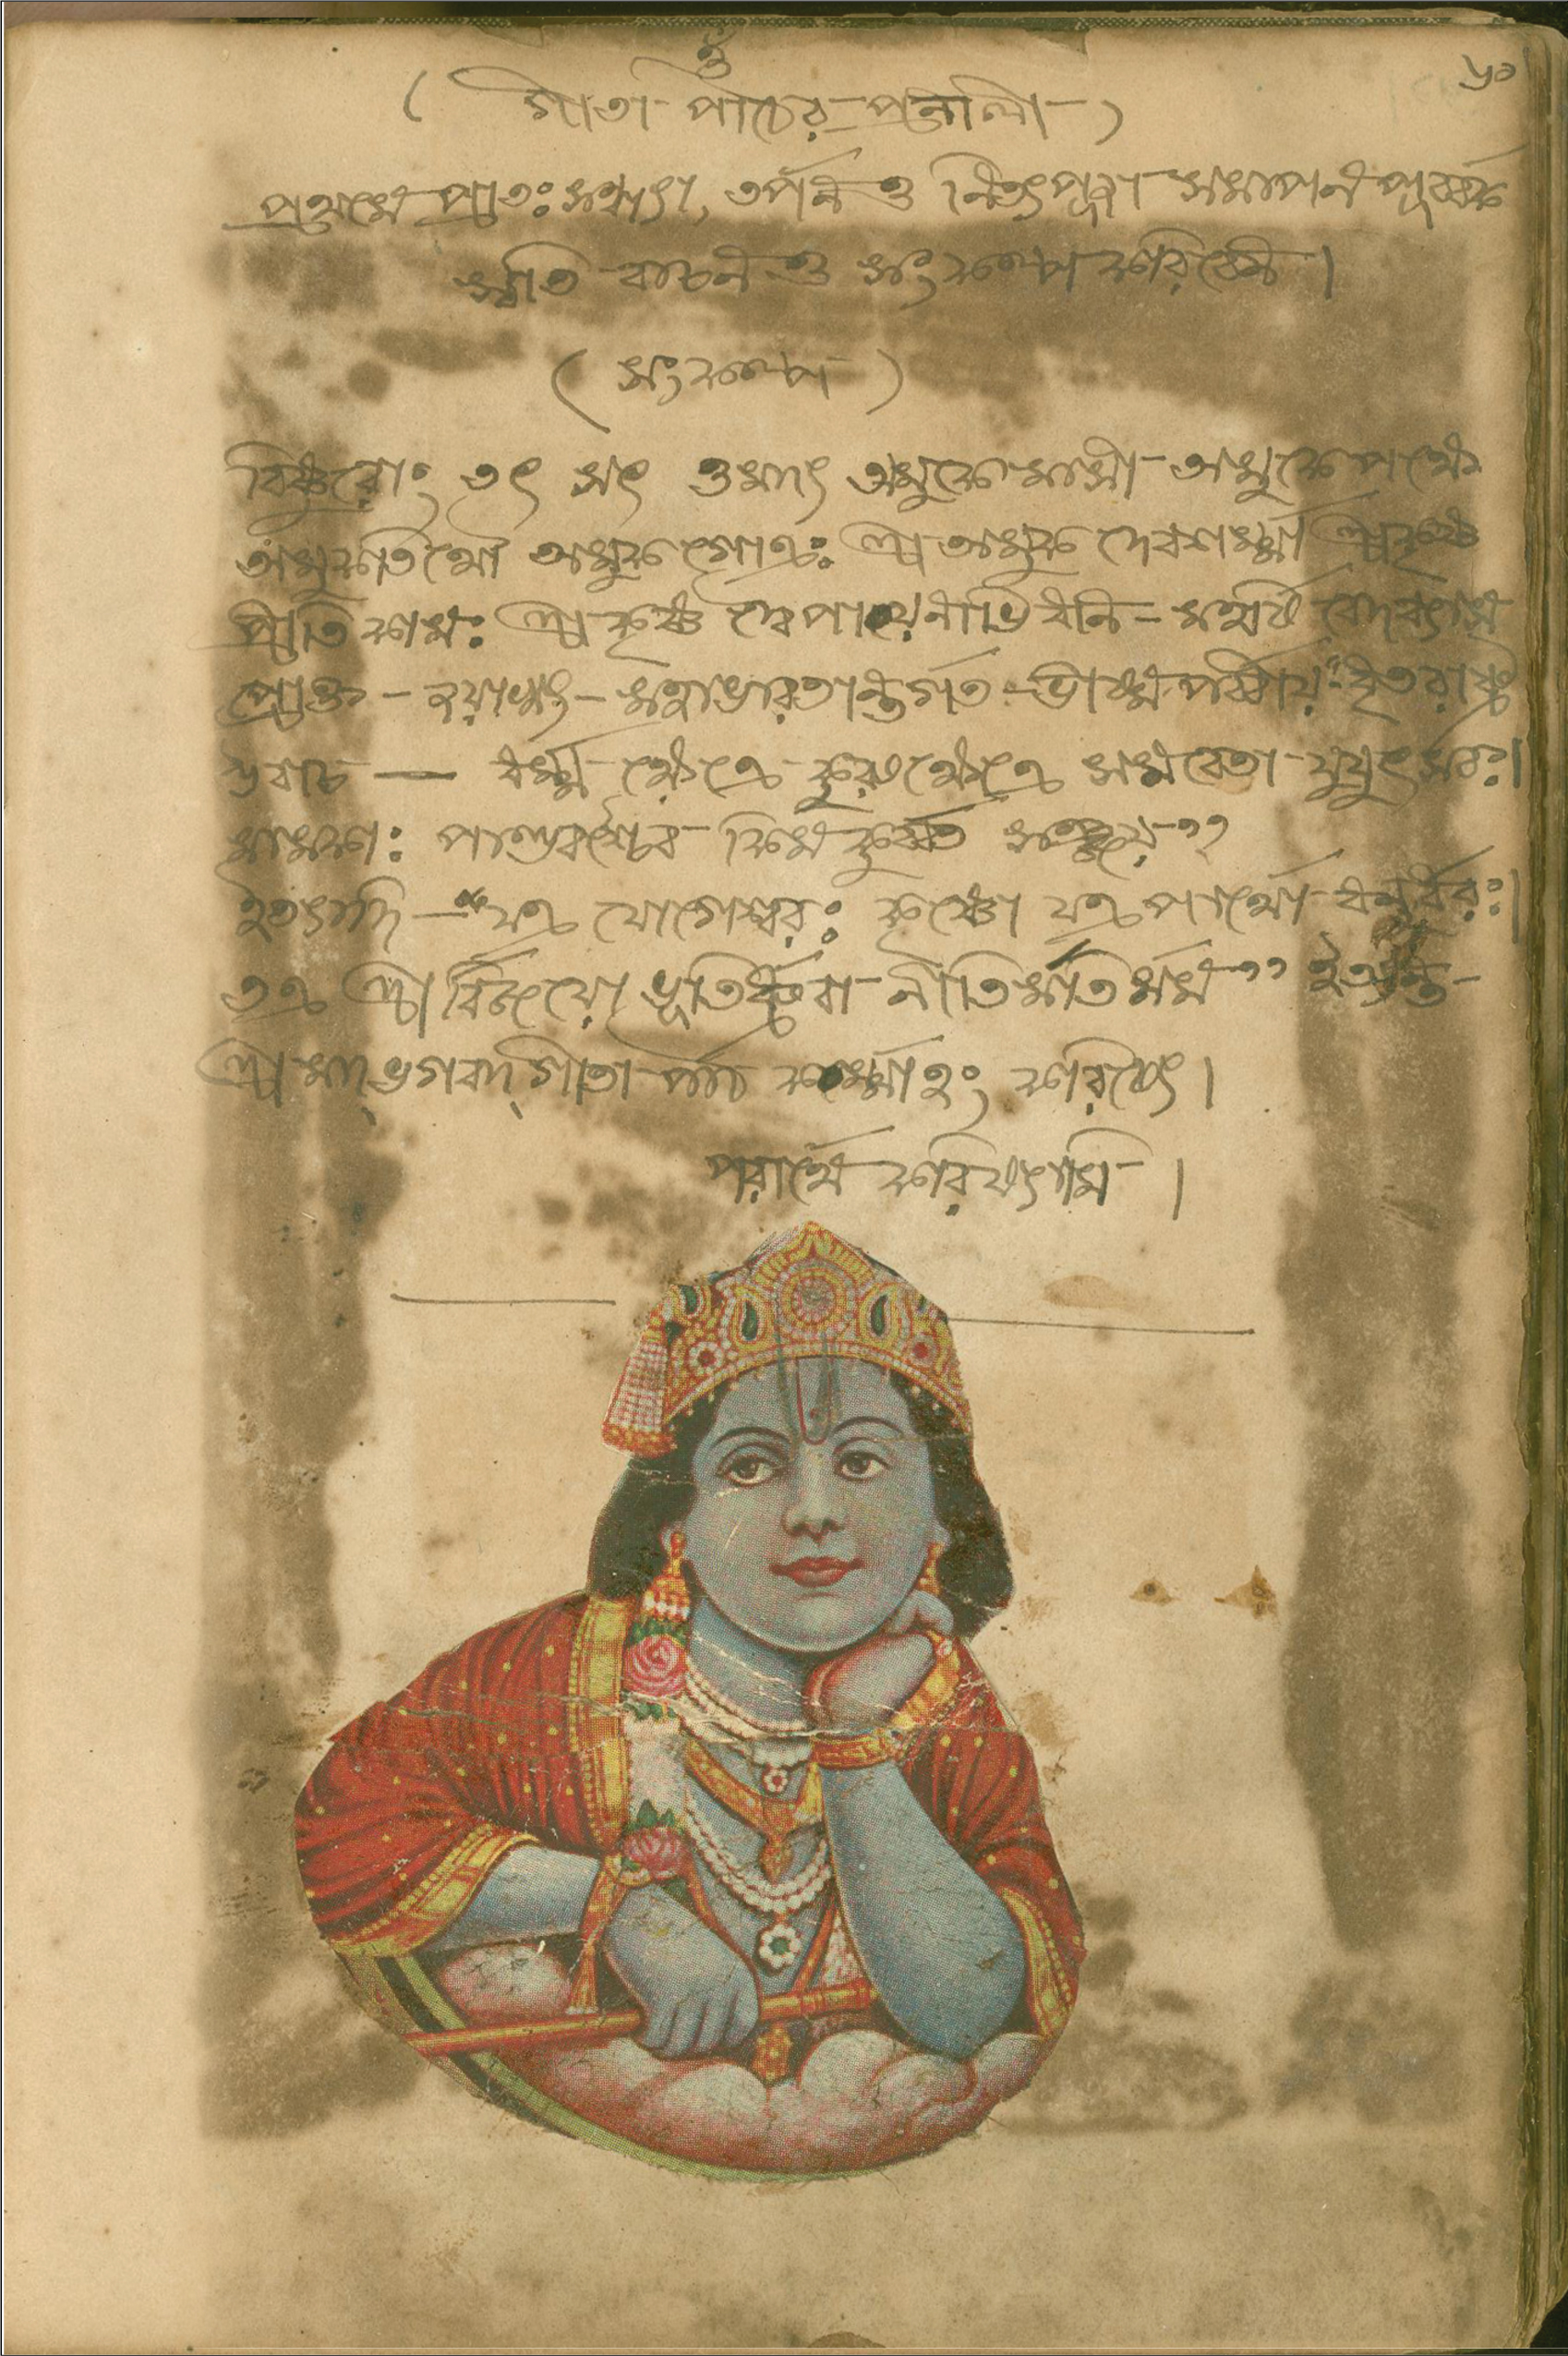 ৬০
ওঁ
( গীতা পাঠের প্রনালী )
প্রথমে প্রাতঃসন্ধ্যা, তর্পন ও নিত্যপূজা সমাপন পূর্ব্বক
স্বতি বাচন ও সংকল্প করিবে ।
( সংকল্প )
বিষ্ণুরোঁ তৎ সৎ ওমদ্য অমুকে মাসী অমুকে পক্ষে
অমুক তিথৌ অমুক গোত্রঃ শ্রী অমুক দেবশর্ম্মা শ্রীকৃষ্ণ
প্রীতি কামঃ শ্রীকৃষ্ণ দ্বৈপায়নাভিধানি - মহর্ষি বেদব্যাস
প্রোক্ত - মহাভারতান্তর্গত - ভীষ্মপর্ব্বীয় "ধৃতরাষ্ট্র
উবাচ — ধর্ম্ম ক্ষেত্রে কুরুক্ষেত্রে সমবেতা যুযুৎসবঃ।
মামকাঃ পাণ্ডবশ্চৈব কিমকুর্ব্বত সঞ্জয়"
ইত্যাদি — "যত্র যোগেশ্বরঃ কৃষ্ণো যত্র পার্থো ধনুর্ধরঃ।
তত্র শ্রীর্বিজয়ো ভূতির্ধ্রুবা নীতির্মতির্মম" ইত্যন্ত -
শ্রীমদ্ভগবদ্গীতা পাঠ কর্ম্মাহং করিষ্যে ।
পরার্থে করিষ্যামি ।